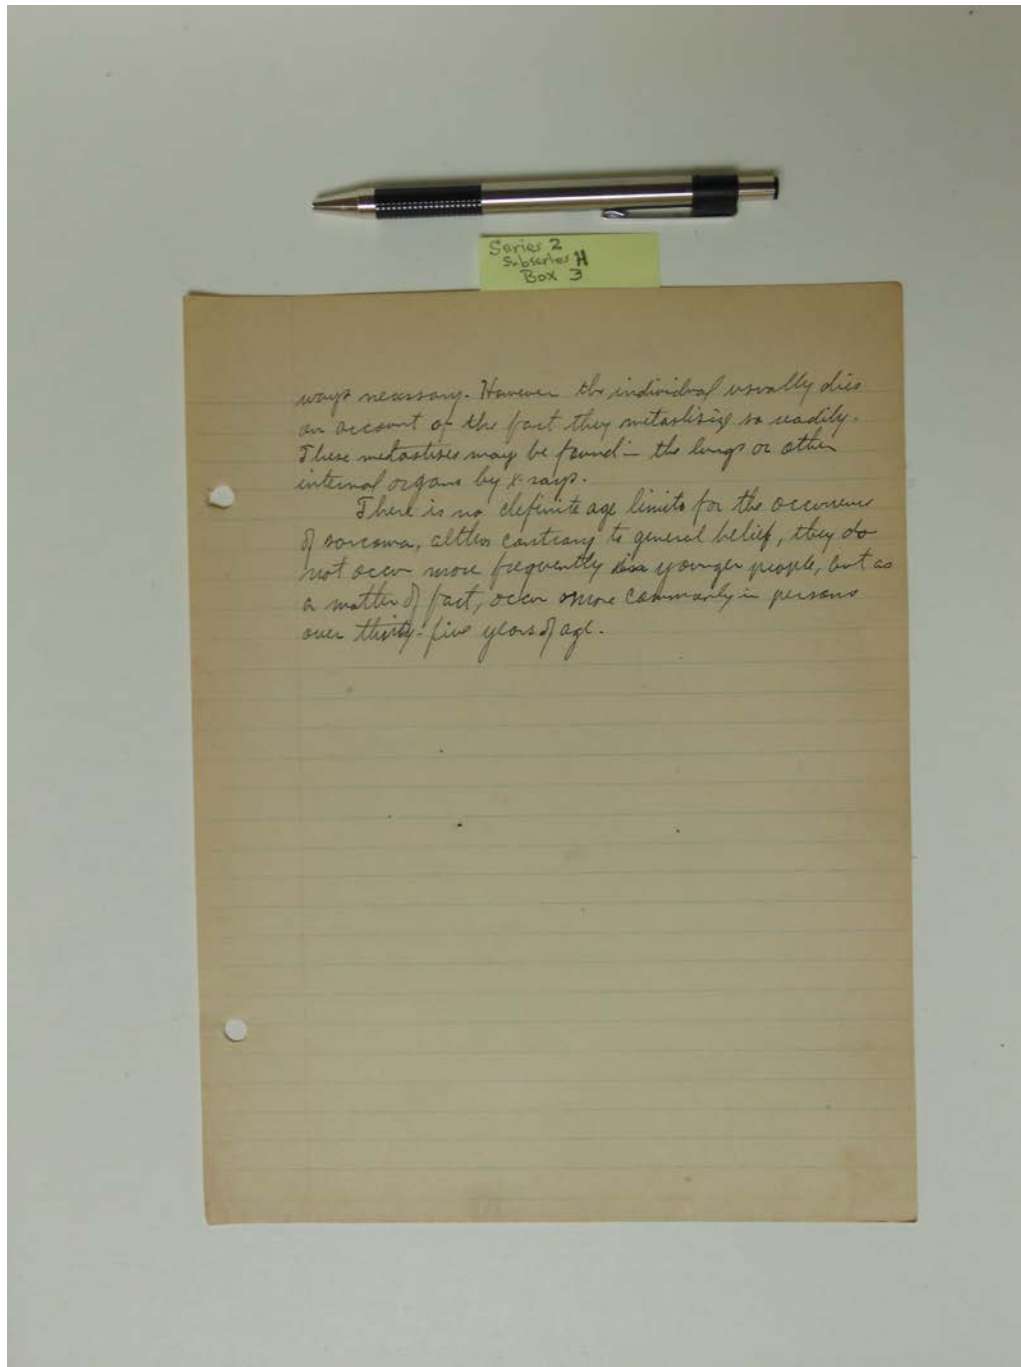 Series 2
Subseries H
Box 3
ways necessary. However the individual usually dies
on account of the fact they metastisize so readily.
These metastises may be found in the lungs or other
internal organs by x-rays.
There is no definite age limits for the occurrence
of sarcoma, altho contrary to general belief, they do
not occur more frequently in younger people, but as
a matter of fact, occur more commonly in persons
over thirty-five years of age.